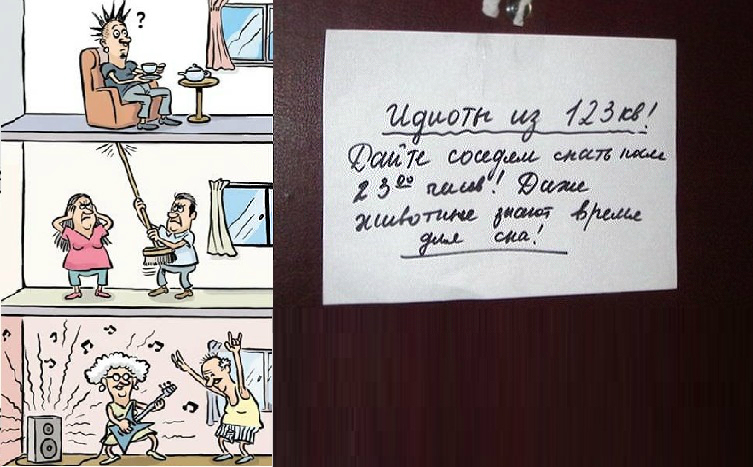 ?
Идиоты из 123 кв!
Дайте соседям спать после
23⁰⁰ часов! Даже
животные знают время
для сна!